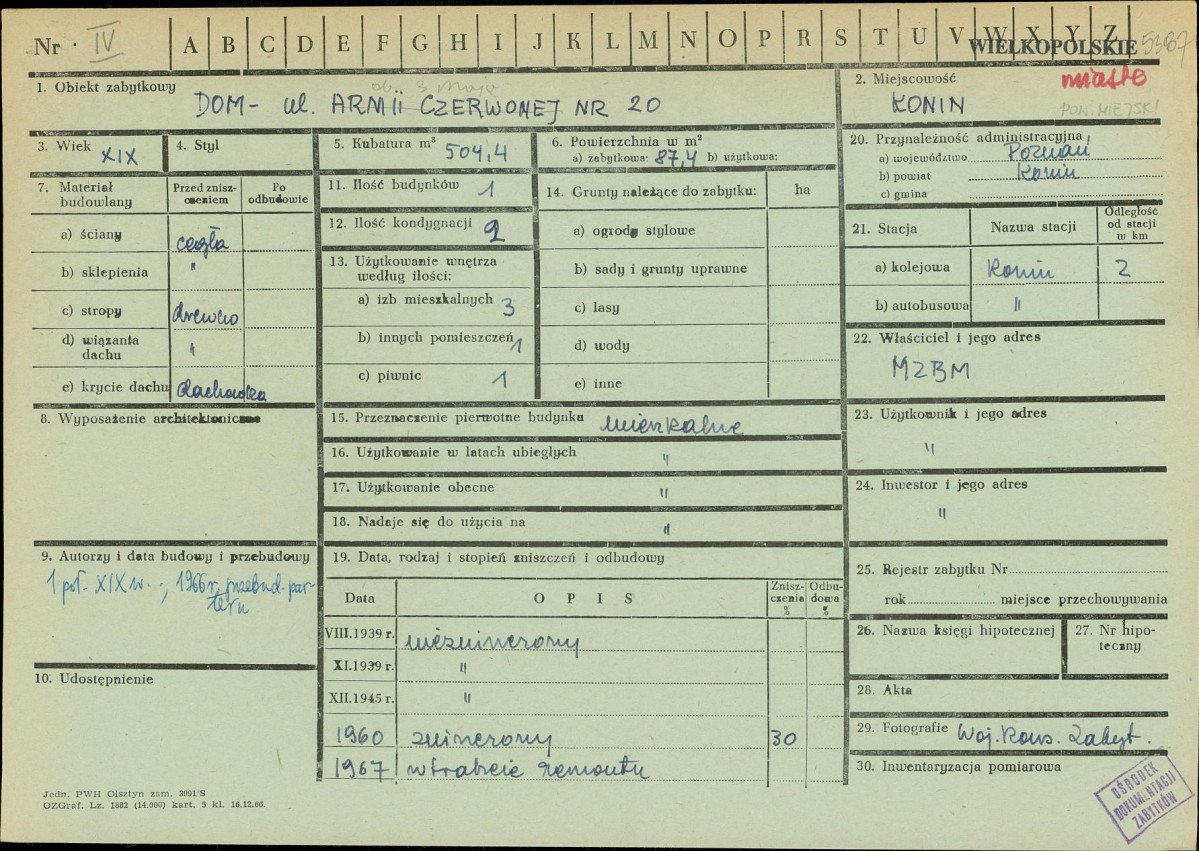 Nr · IV A B C D E F G H I J K L M N O P R S T U V W X Y Z
WIELKOPOLSKIE 5387
miasto
POW. MIEJSKI
1. Obiekt zabytkowy
ob. 3 Maja
DOM - ul. ARMII CZERWONEJ NR 20
2. Miejscowość
KONIN
3. Wiek XIX
4. Styl
5. Kubatura m³ 504,4
6. Powierzchnia w m²
a) zabytkowa: 87,4 b) użytkowa:
7. Materiał budowlany
Przed zniszczeniem
Po odbudowie
a) ściany cegła
b) sklepienia "
c) stropy drewno
d) wiązania dachu "
e) krycie dachu dachówka
8. Wyposażenie architektoniczne
9. Autorzy i data budowy i przebudowy
1 poł. XIX w.; 1966 r. przebud. par-
teru
10. Udostępnienie
11. Ilość budynków 1
12. Ilość kondygnacji 2
13. Użytkowanie wnętrza
według ilości:
a) izb mieszkalnych 3
b) innych pomieszczeń 1
c) piwnic 1
14. Grunty należące do zabytku: ha
a) ogrody stylowe
b) sady i grunty uprawne
c) lasy
d) wody
e) inne
15. Przeznaczenie pierwotne budynku mieszkalne
16. Użytkowanie w latach ubiegłych "
17. Użytkowanie obecne "
18. Nadaje się do użycia na "
19. Data, rodzaj i stopień zniszczeń i odbudowy
Data OPIS Zniszczenia % Odbudowa %
VIII.1939 r. niezniszczony
XI.1939 r. "
XII.1945 r. "
1960 zniszczony 30
1967 w trakcie remontu
20. Przynależność administracyjna
a) województwo Poznań
b) powiat Konin
c) gmina
21. Stacja Nazwa stacji Odległość od stacji w km
a) kolejowa Konin 2
b) autobusowa "
22. Właściciel i jego adres
MZBM
23. Użytkownik i jego adres
"
24. Inwestor i jego adres
"
25. Rejestr zabytku Nr
rok miejsce przechowywania
26. Nazwa księgi hipotecznej
27. Nr hipo-
teczny
28. Akta
29. Fotografie Woj. Kons. Zabyt.
30. Inwentaryzacja pomiarowa
OŚRODEK
DOKUMENTACJI
ZABYTKÓW
Jedn. PWH Olsztyn zam. 3991/S
OZGraf. Lz. 1882 (14.000) kart. 5 kl. 16.12.66.